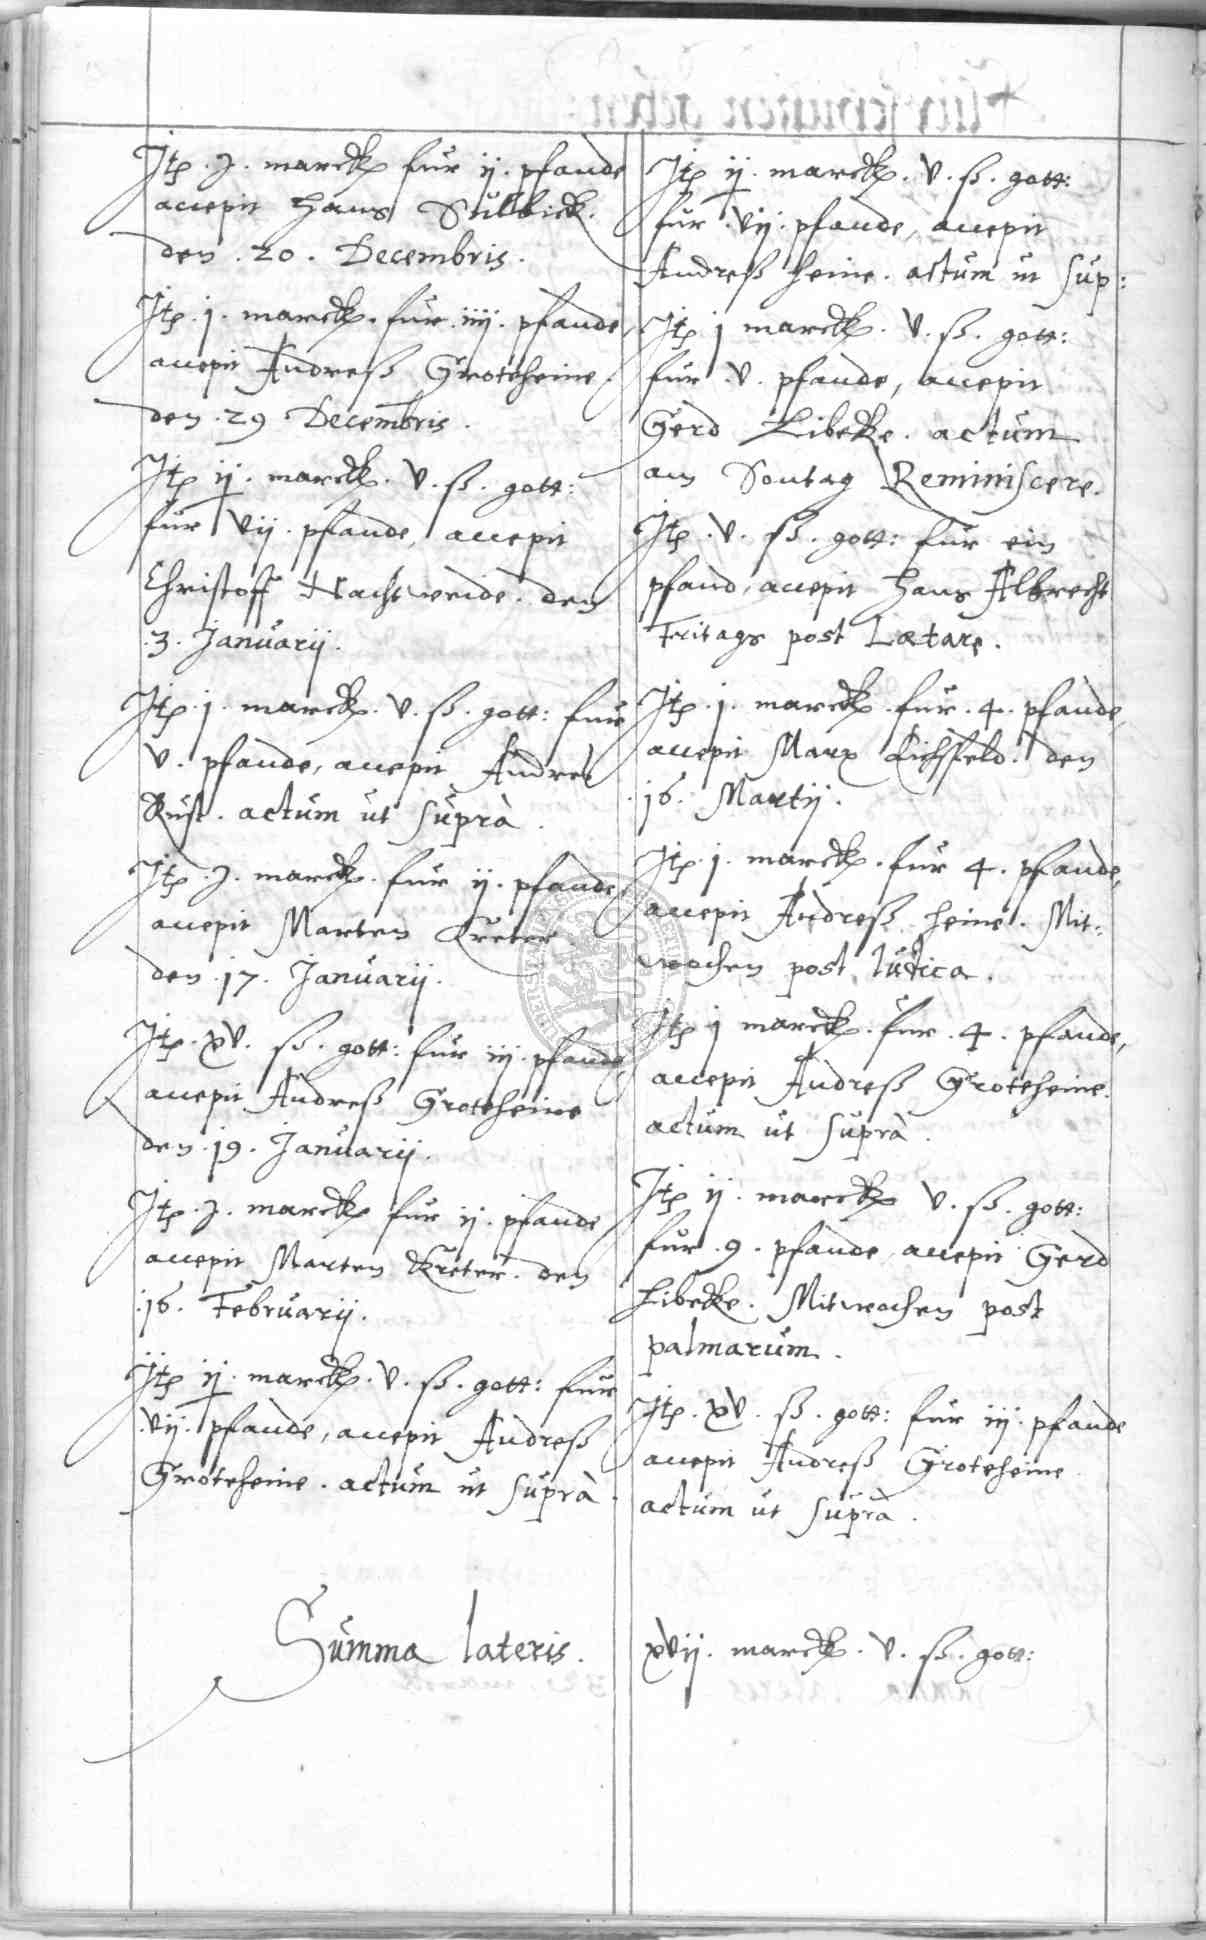 Itē .j. marck für ij. pfande
accepit Hans Sülbick.
den .20. Decembris.
Itē .j. marck. für .iiij. pfande,
accepit Andreß Groteheine.
den .29 Decembris.
Itē ij. marck. v. ß. gott:
für vij. pfande, accepit
Christoff Nachtweide. den
.3. Januarij.
Itē .j. marck. v. ß. gott: für
v. pfande, accepit Andres
Rust. actum ut suprà.
Itē .j. marck. für ij. pfande
accepit Marten Kreter.
den .17. Januarij.
Itē .xv. ß. gott: für iij. pfande,
accepit Andreß Groteheine
den .19. Januarij.
Itē .j. marck für ij. pfande
accepit Marten Kreter. den
.16. Februarij.
Itē ij. marck. v. ß. gott: für
.vij. pfande, accepit Andreß
Groteheine. actum ut suprà.
Summa lateris.
Itē ij. marck. v. ß. gott:
für .vij. pfande, accepit
Andreß Heine. actum ut sup:
Itē j marck. v. ß. gott:
für .v. pfande, accepit
Gerd Libecke. actum
am Sontag Reminiscere.
Itē .v. ß. gott: für ein
pfand, accepit Hans Albrecht
Fritags post Lætare.
Itē .j. marck. für .4. pfande,
accepit Marx Eichsfeld. den
.16. Martij.
Itē .j. marck. für 4. pfande,
accepit Andreß Heine. Mit-
wochen post Iudica.
Itē j marck. für .4. pfande,
accepit Andreß Groteheine.
actum ut suprà.
Itē ij. marck v. ß. gott:
für .9. pfande accepit Gerd
Libecke. Mitwochen post
palmarum.
Itē .xv. ß. gott: für iij. pfande
accepit Andreß Groteheine
actum ut suprà.
xvij. marck. v. ß. gott: